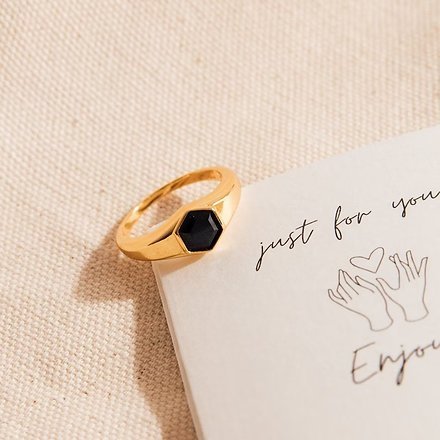 just for you
Enjoy